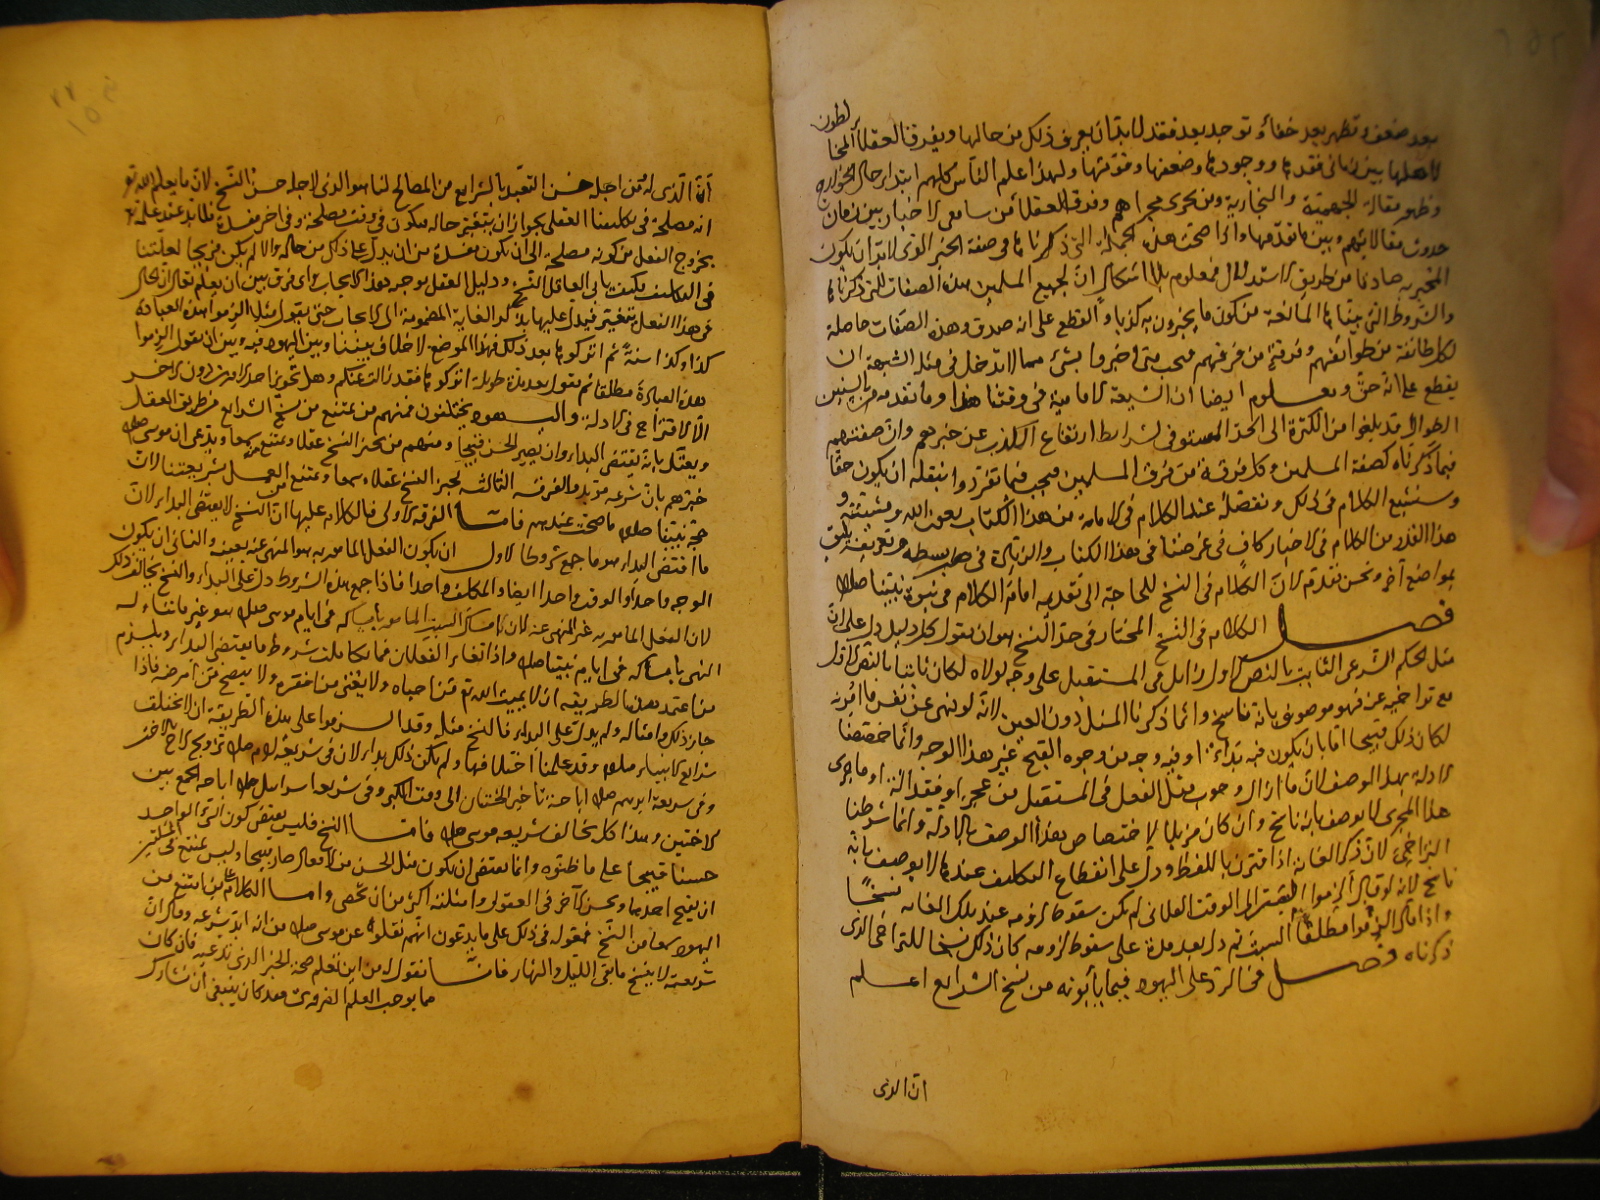 بعد ضعف وتظهر بعد خفاء وتوجد بعد فقد لا بد ان يعرف ذلك من حالها ويفرق العقلاء المخالطون
لاهلها بين زماني فقدها ووجودها وضعفها وقوتها ولهذا علم الناس كلهم ابتداء حال الخوارج
وظهور مقالة الجهمية والنجارية ومن جرى مجراهم وفرق العقلاء من سامعي الاخبار بين زمان
حدوث مقالاتهم وبين ما تقدمها واذا صحت هذه الجملة التي ذكرناها في صفة الخبر الذي لا بد ان يكون
المخبر به صادقا من طريق الاستدلال فمعلوم بلا اشكال ان لجميع المسلمين هذه الصفات التي ذكرناها
والشروط التي بيناها المانعة من كون ما يخبرون به كذبا والقطع على انه صدق وهذه الصفات حاصلة
لكل طائفة من طوائفهم وفرقة من فرقهم فيجب متى اخبروا بشيء مما لا تدخل في مثله الشبهة ان
يقطع على انه حق ومعلوم ايضا ان الشيعة الامامية في وقتنا هذا وما تقدمه من السنين
الطوال قد بلغوا من الكثرة الى الحد المستوفي لشرائط ارتفاع الكذب عن خبرهم وان صفتهم
فيما ذكرناه كصفة المسلمين وكل فرقة من فرق المسلمين فيجب فيما تفردوا بنقله ان يكون حقا
وسنتبع الكلام في ذلك ونفصله عند الكلام في الامامة من هذا الكتاب بعون الله ومشيته و
هذا القدر من الكلام في الاخبار كاف في غرضنا في هذا الكتاب والزيادة في بسطه وتفريعه يليق
بمواضع اخر ونحن نقدم الان الكلام في النسخ للحاجة الى تقديمه امام الكلام في نبوة نبينا صلعم
فصل الكلام في النسخ المختار في حد النسخ هو ان يقول كل دليل دل على ان
مثل الحكم الشرعي الثابت بالنص الاول زائل في المستقبل على وجه لولاه لكان ثابتا بالنص الاول
مع تراخيه عنه فهو موصوف بانه ناسخ وانما ذكرنا المثل دون العين لانه لو نهى عن نفس ما امر به
لكان ذلك قبيحا اما بان يكون فيه بداء او فيه وجه من وجوه القبح غير هذا الوجه وانما خصصنا
الادلة بهذا الوصف لان ما ازال وجوب مثل الفعل في المستقبل من عجز او فقد آلة او ما جرى
هذا المجرى لا يوصف بانه ناسخ وان كان مزيلا لاختصاص هذا الوصف بالادلة وانما شرطنا
التراخي لان ذكر الغاية اذا اقترن باللفظ ودل على انقطاع التكليف عندها لا يوصف بانه
ناسخ لانه لو قال الزموا السبت الى الوقت الفلاني لم يكن سقوط لزومه عند تلك الغاية نسخا
واذا قال الزموا مطلقا السبت ثم دل بعد مدة على سقوط لزومه كان ذلك نسخا للتراخي الذي
ذكرناه فصل في الرد على اليهود فيما يأبونه من نسخ الشرائع اعلم
ان الذي
ان الذي له من اجله حسن التعبد بالشرايع من المصالح لنا هو الذي لاجله حسن النسخ لان ما يعلم الله تع
انه مصلحة في تكليفنا العقلي يجوز ان يتغير حاله فيكون في وقت مصلحة وفي اخر مفسدة فلا بد عند علمه تع
بخروج الفعل من كونه مصلحة الى ان يكون مفسدة من ان يدل على ذلك من حاله والا لم يكن مزيحا لعلتنا
في التكليف فكيف يابى العاقل النسخ ودليل العقل يوجبه هذا الايجاب واي فرق بين ان يعلم تعالى ان حال
هذا الفعل تتغير فيدل عليها بذكر الغاية المضمومة الى الايجاب حتى يقول مثلا الزموا هذه العبادة
كذا وكذا سنة ثم اتركوها بعد ذلك فهذا الموضع لا خلاف بيننا وبين اليهود فيه وبين ان يقول الزموا
هذه العبادة مطلقا ثم يقول بعد مدة طويلة اتركوها فقد زالت عنكم وهل تجويز احد الامرين دون الاخر
الا الاقتراح في الادلة واليهود يختلفون فمنهم من يمتنع من نسخ الشرائع من طريق العقل
ويعتل بانه يقتضي البداء وان يصير الحسن قبيحا ومنهم من يجيز النسخ عقلا ويمتنع منه سمعا ويدعي ان موسى صلعم
خبرهم بان شرعه مؤبد والفرقة الثالثة تجيز النسخ عقلا وسمعا وتمتنع من العمل بشريعتنا لان
حجة نبينا صلعم ما صحت عندهم فاما الفرقة الاولى فالكلام عليها ان النسخ لا يقتضي البداء لان
ما اقتضى البداء هو ما جمع شروطا الاول ان يكون الفعل المامور به هو المنهي عنه بعينه والثاني ان يكون
الوجه واحدا والوقت واحدا ايضا والمكلف واحدا فاذا جمع هذه الشروط دل على البداء والنسخ يخالف ذلك
لان الفعل المامور به غير المنهي عنه لان امساك السبت المامور به في ايام موسى صلعم هو غير ما تناوله
النهي بامساكه في ايام نبينا صلعم واذا تغاير الفعلان فما تكاملت شروط ما يقتضي البداء ويلزم
من اعتمد هذه الطريقة ان لا يميت الله تع من احياه ولا يغني من افقره ولا يصح من امرضه فاذا
جاز ذلك وامثاله ولم يدل على البداء فالنسخ مثله وقد الزموا على هذه الطريقة ان لا تختلف
شرائع الانبياء صلعم وقد علمنا اختلافها ولم يكن ذلك بداء لان في شريعة ادم صلعم تزويج الاخ الاخت
وفي شريعة ابرهيم صلعم اباحة تاخير الختان الى وقت الكبر وفي شريعة اسرائيل صلعم اباحة الجمع بين
الاختين وهذا كله يخالف شريعة موسى صلعم فاما النسخ فليس يقتضي كون الشيء الواحد
حسنا قبيحا على ما ظنوه وانما يقتضي ان يكون مثل الحسن من الافعال صار قبيحا وليس يمتنع في المثلين
ان يقبح احدهما ويحسن الآخر في العقول وامثلته اكثر من ان تحصى واما الكلام على من امتنع من
اليهود سمعا من النسخ فمعوله في ذلك على ما يدعون انهم نقلوه عن موسى صلعم من انه ابد شرعه وقال ان
شريعته لا ينسخ ما بقي الليل والنهار فانا نقول له من اين تعلم صحة الخبر الذي تدعيه فان كان
مما يوجب العلم الضروري فقد كان ينبغي ان نشارك